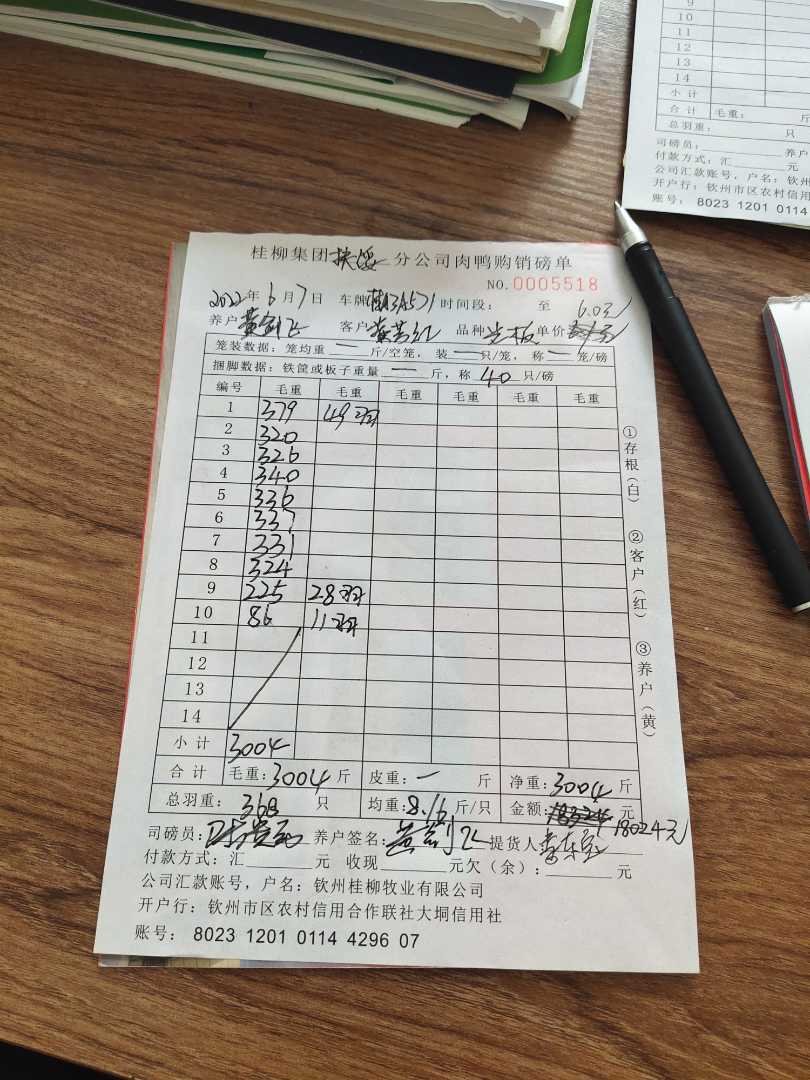 桂柳集团扶绥分公司肉鸭购销磅单
NO.0005518
2022年6月7日 车牌 时间段： 至 6.03元
养户 客户 品种 光板 单价
笼装数据：笼均重 一 斤/空笼， 装 一 只/笼， 称 一 笼/磅
捆脚数据：铁筐或板子重量 一 斤，称 40 只/磅
编号 毛重 毛重 毛重 毛重 毛重 毛重
1 379 49羽
2 320
3 326
4 340
5 336
6 337
7 331
8 324
9 225 28羽
10 86 11羽
11
12
13
14
小计 3004
合计 毛重：3004斤 皮重：一 斤 净重：3004斤
总羽重： 368 只 均重：8.16斤/只 金额： 元
18024元
司磅员： 养户签名： 提货人
付款方式：汇 元 收现 元欠（余）： 元
公司汇款账号，户名：钦州桂柳牧业有限公司
开户行：钦州市区农村信用合作联社大垌信用社
账号： 8023 1201 0114 4296 07
①存根（白） ②客户（红） ③养户（黄）
9
10
11
12
13
14
小计
合计 毛重： 斤
总羽重： 只
司磅员： 养户
付款方式：汇 元
公司汇款账号，户名：钦州
开户行：钦州市区农村信用
账号： 8023 1201 0114